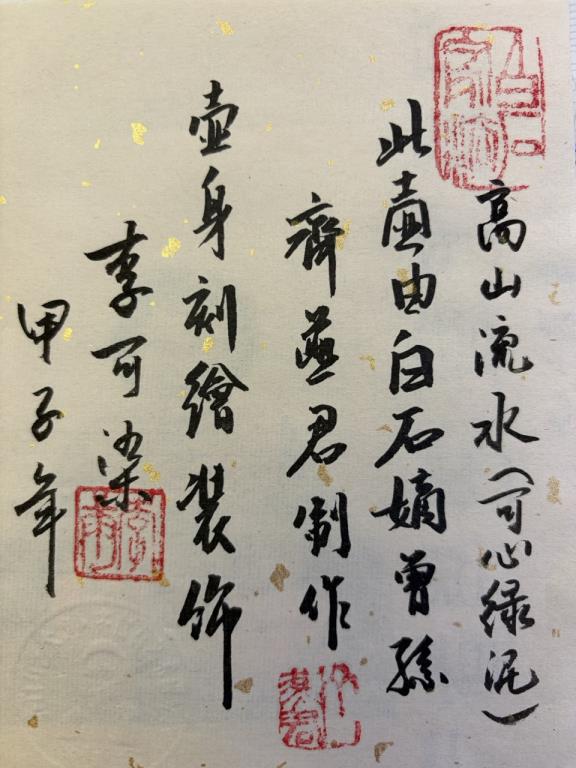 高山流水(可心绿泥)
此壺由白石嫡曾孫
齊燕君制作
壺身刻繪装飾
李可染
甲子年